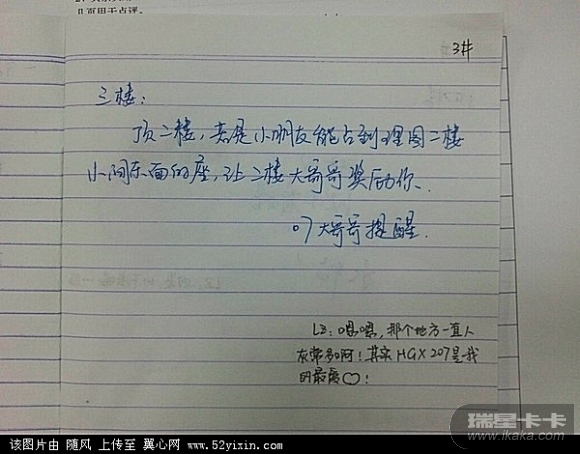 几页用于点评。
3#
三楼：
顶二楼，若是小朋友能占到理图二楼
小阅东面的座，让二楼大哥哥奖励你、
07大哥哥提醒.
LZ：嗯嗯，那个地方一直人
灰常多啊！其实HGX207是我
的最爱♡！
瑞星卡卡
www.ikaka.com
该图片由 随风 上传至 翼心网 www.52yixin.com